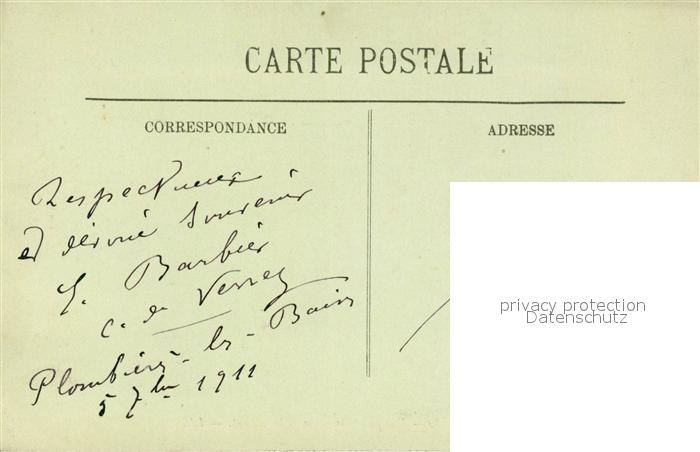 CARTE POSTALE
CORRESPONDANCE
ADRESSE
Respectueux
et dévoué souvenir
Barbier
c. de
Plombières-les-Bains
5 7bre 1911
privacy protection
Datenschutz